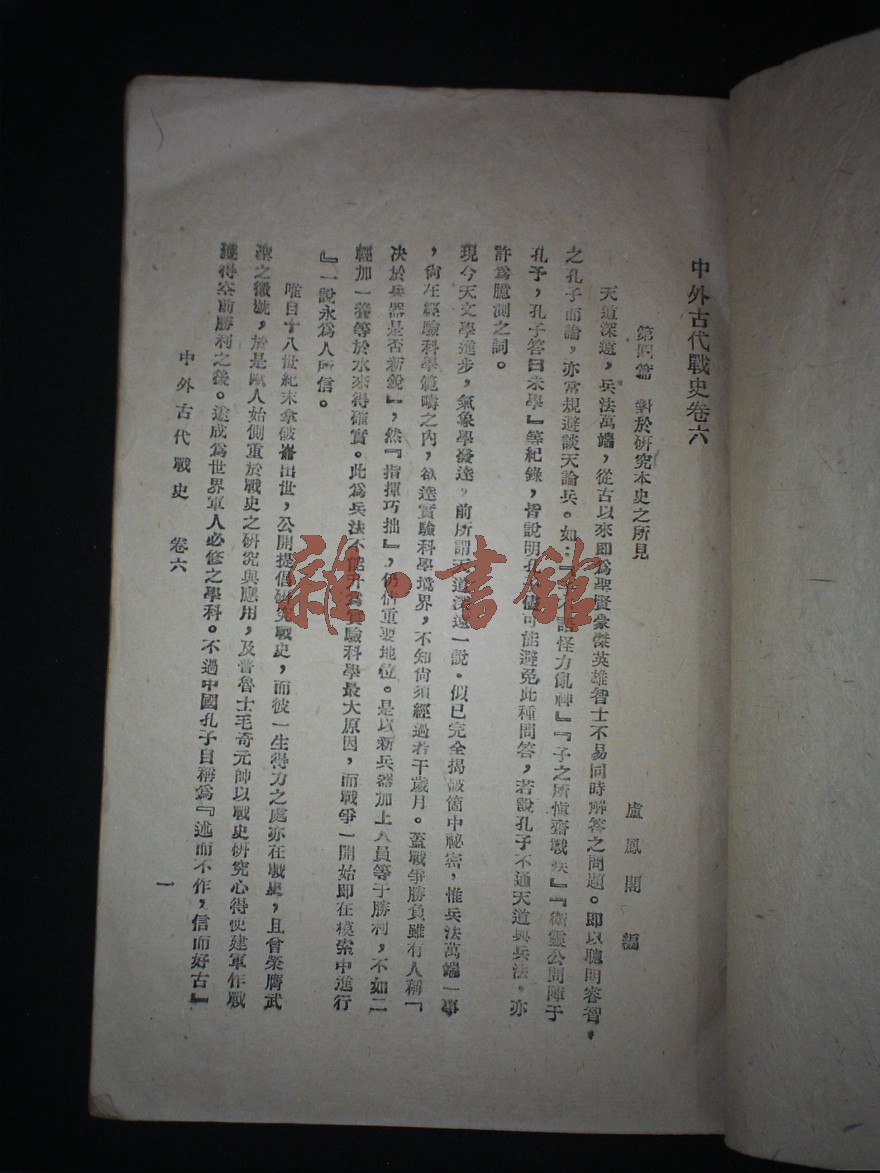 中外古代戰史卷六
第四篇　對於研究本史之所見
盧鳳閣　編
天道深遠，兵法萬端，從古以來即爲聖賢豪傑英雄智士不易同時解答之問題。即以聰明睿智，
之孔子而論，亦常規避談天論兵。如：『子不語怪力亂神』『子之所愼齋戰疾』『衛靈公問陣于
孔子，孔子答曰未學』等紀錄，皆說明孔子儘可能避免此種問答，若說孔子不通天道與兵法，亦
許爲臆測之詞。
現今天文學進步，氣象學發達，前所謂天道深遠一說。似已完全揭破箇中祕密，惟兵法萬端一事
，尙在經驗科學範疇之內，欲達實驗科學境界，不知尙須經過若干歲月。蓋戰爭勝負雖有人稱『
决於兵器是否新銳』，然『指揮巧拙』，仍佔重要地位。是以新兵器加上人員等于勝利，不如二
輕加一養等於水來得確實。此爲兵法不能升爲實驗科學最大原因，而戰爭一開始即在模索中進行
『一說永爲人所信。
唯自十八世紀末拿破崙出世，公開提倡研究戰史，而彼一生得力之處亦在戰史，且曾榮膺武
聖之徽號，於是歐人始側重於戰史之研究與應用，及普魯士毛奇元帥以戰史研究心得使建軍作戰
獲得空前勝利之後。遂成爲世界軍人必修之學科。不過中國孔子自稱爲『述而不作，信而好古』
中外古代戰史　卷六
一
雜·書館